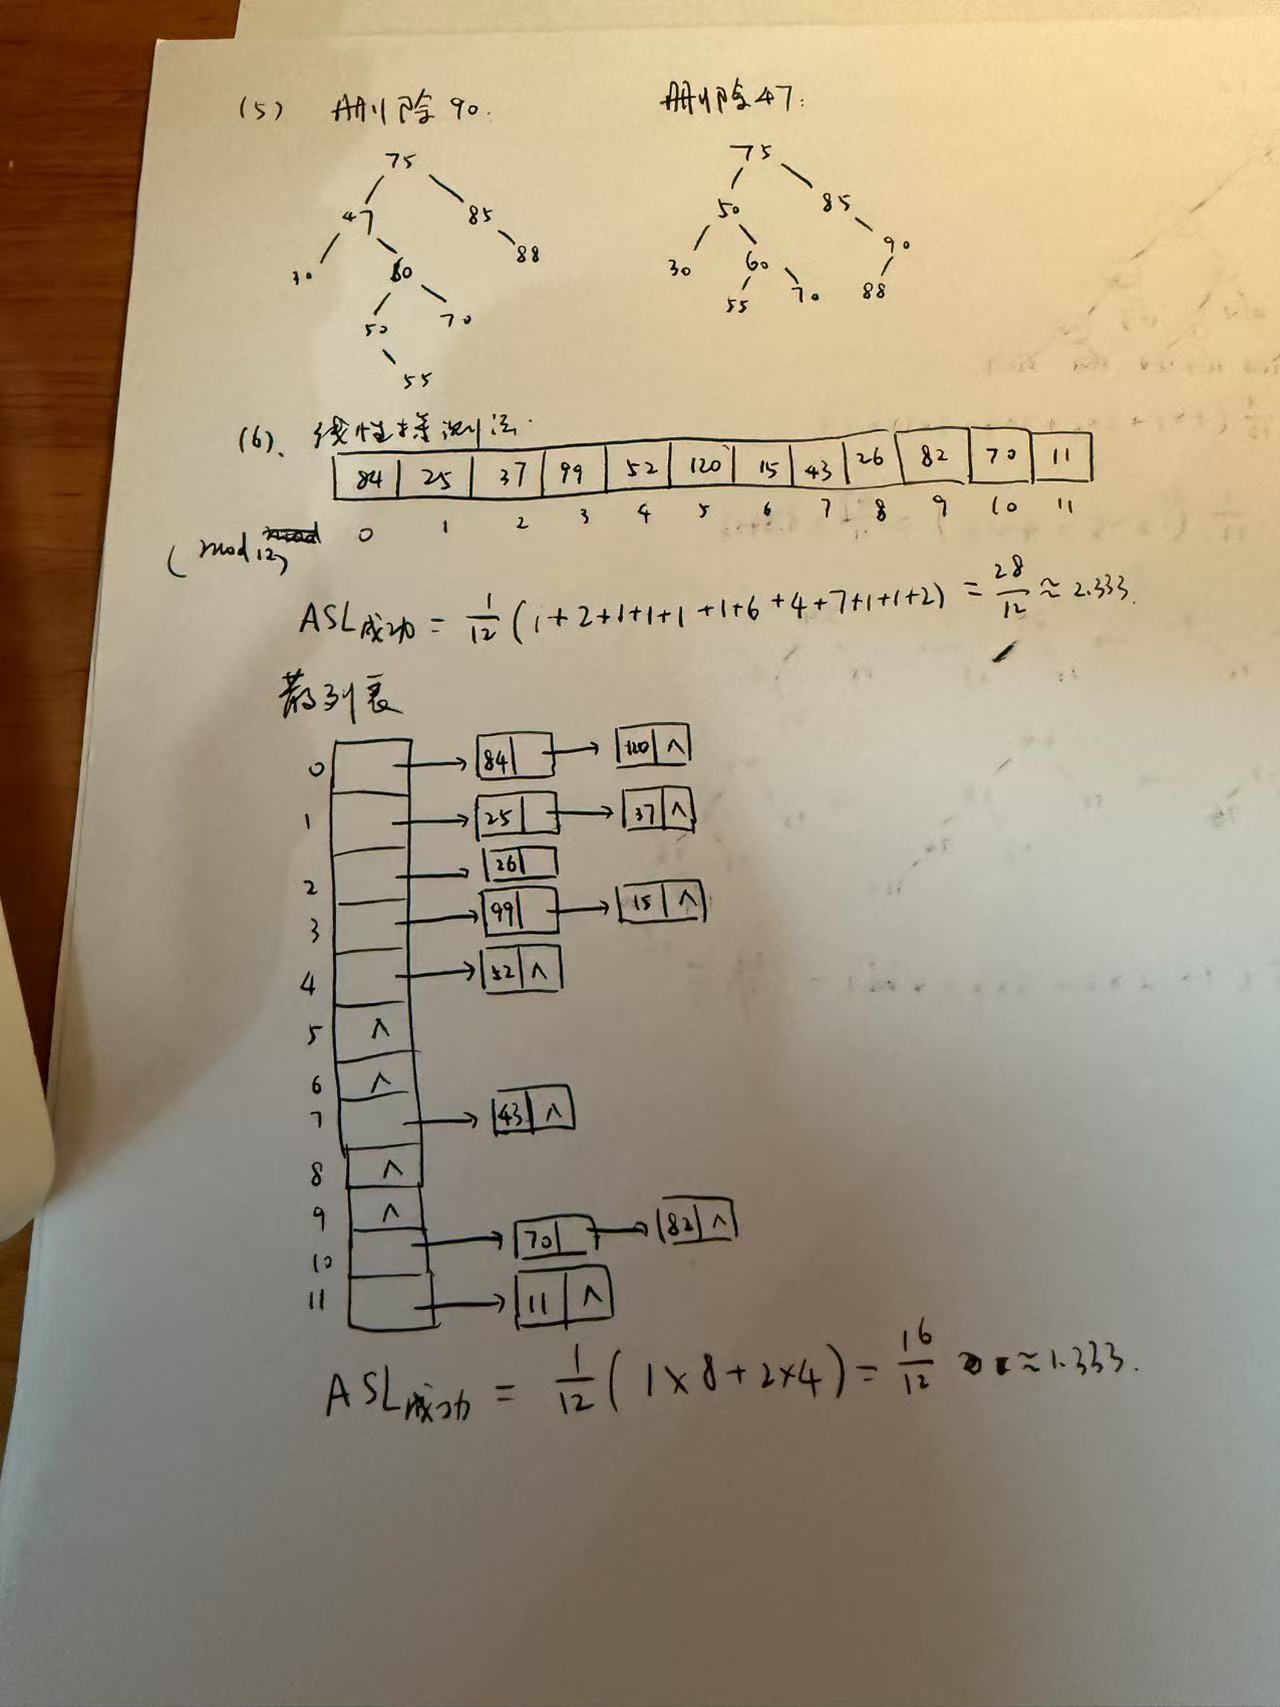 (5) 删除 90. 删除 47:
75
47 85
30 60 88
50 70
55
75
50 85
30 60 90
55 70 88
(6)、线性探测法.
84 25 37 99 52 120 15 43 26 82 70 11
0 1 2 3 4 5 6 7 8 9 10 11
(mod 12)
ASL成功 = 1/12 (1+2+1+1+1+1+6+4+7+1+1+2) = 28/12 ≈ 2.333.
散列表
0 84 120 ∧
1 25 37 ∧
2 26
3 99 15 ∧
4 52 ∧
5 ∧
6 ∧
7 43 ∧
8 ∧
9 ∧
10 70 82 ∧
11 11 ∧
ASL成功 = 1/12 (1×8+2×4) = 16/12 ≈ 1.333.